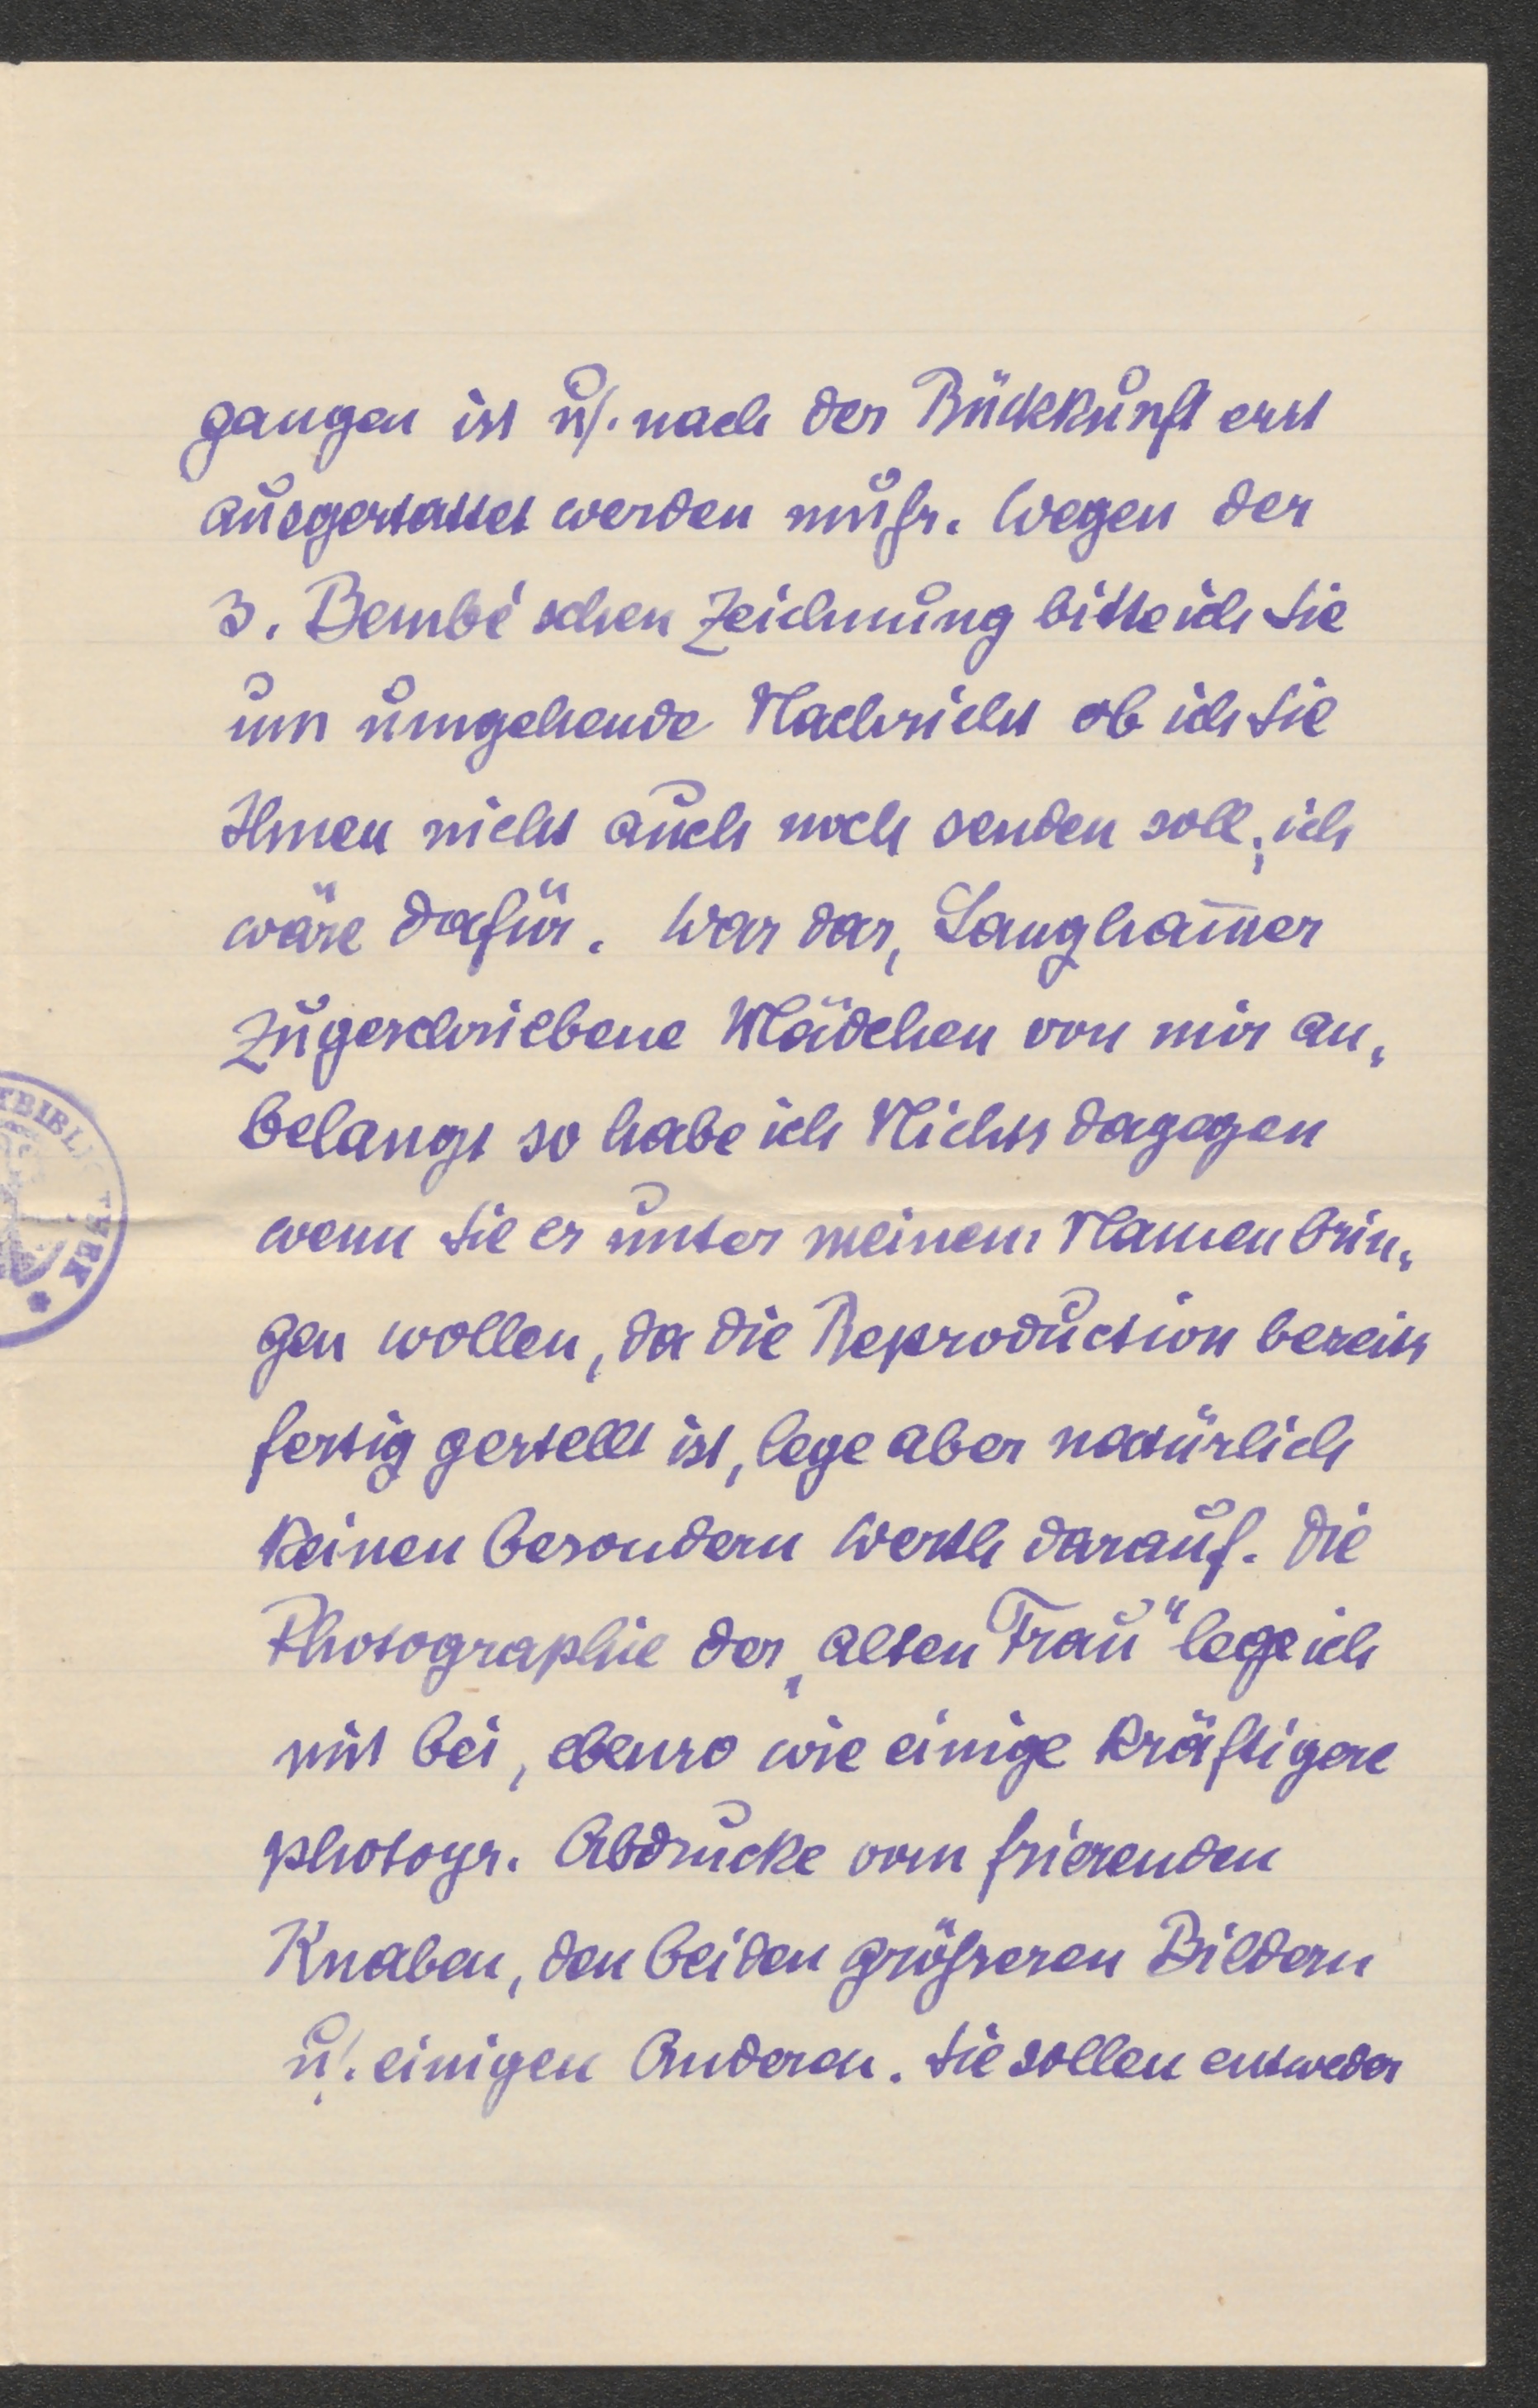 gangen ist u/. nach der Rückkunft erst
ausgestattet werden muſs. Wegen der
3. Bembé'schen Zeichnung bitte ich Sie
um umgehende Nachricht ob ich sie
Ihnen nicht auch noch senden soll; ich
wäre dafür. Was das, Langham̅er
zugeschriebene Mädchen von mir an„
belangt so habe ich Nichts dagegen
wenn Sie es unter meinem Namen brin„
gen wollen, da die Reproduction bereits
fertig gestellt ist, lege aber natürlich
keinen besondern Werth darauf. Die
Photographie der „alten Frau" lege ich
mit bei, ebenso wie einige kräftigere
photogr. Abdrucke vom frierenden
Knaben, den beiden gröſseren Bildern
u/. einigen Anderen. Sie sollen entweder
TBIBLIOTHEK